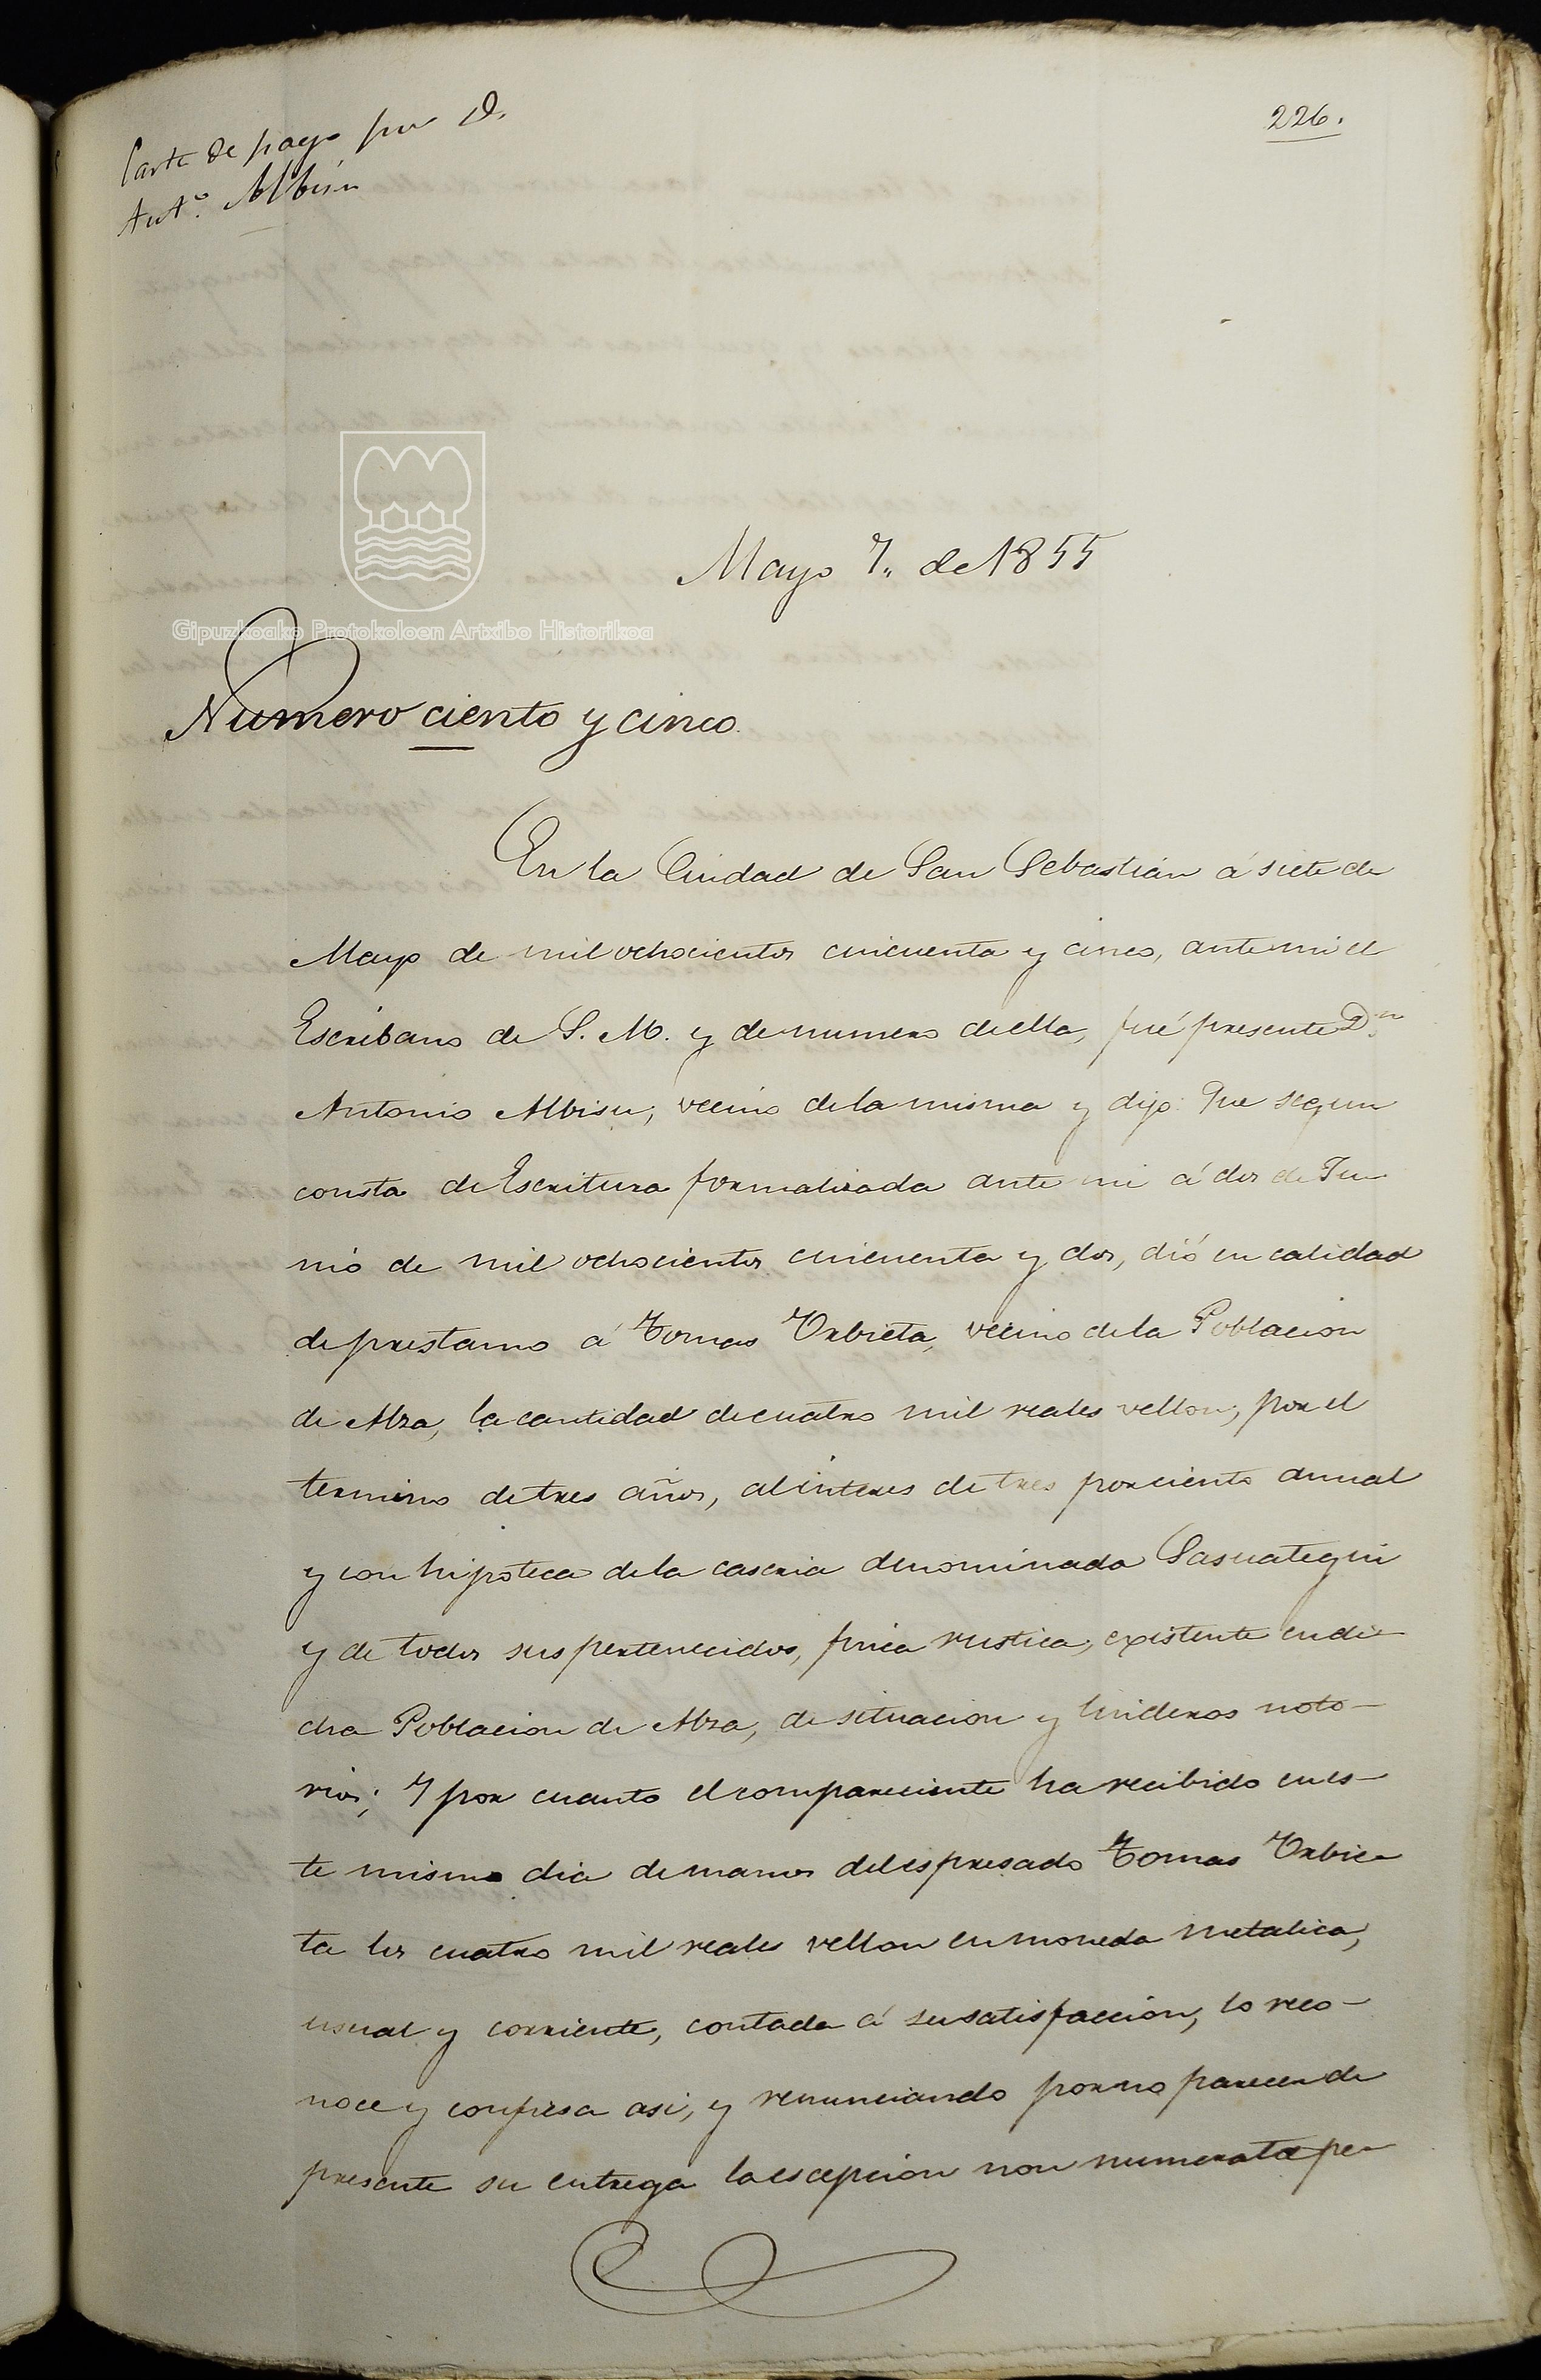 Carta de pago por D.
Ant.º Albisu
226.
Mayo 7,, de 1855
Gipuzkoako Protokoloen Artxibo Historikoa
Numero ciento y cinco.
En la Ciudad de San Sebastián á siete de
Mayo de mil ochocientos cincuenta y cinco, ante mi el
Escribano de S. M. y de numero de ella, fué presente D.n
Antonio Albisu, vecino de la misma y dijo: Que segun
consta de Escritura formalizada ante mi á dos de Ju
nio de mil ochocientos cincuenta y dos, dió en calidad
de prestamo á Tomas Urbieta, vecino de la Poblacion
de Alza, la cantidad de cuatro mil reales vellon, por el
termino de tres años, al interes de tres por ciento anual
y con hipoteca de la caseria denominada Sasuategui
y de todos sus pertenecidos, finca rustica, existente en di-
cha Poblacion de Alza, de situacion y linderos noto-
rios; Y por cuanto el compareciente ha recibido en es-
te mismo dia de manos del espresado Tomas Urbie-
ta los cuatro mil reales vellon en moneda metalica,
usual y corriente, contada á su satisfaccion, lo reco-
noce y confiesa asi, y renunciando por no parecer de
presente su entrega la escepcion non numerata pe-